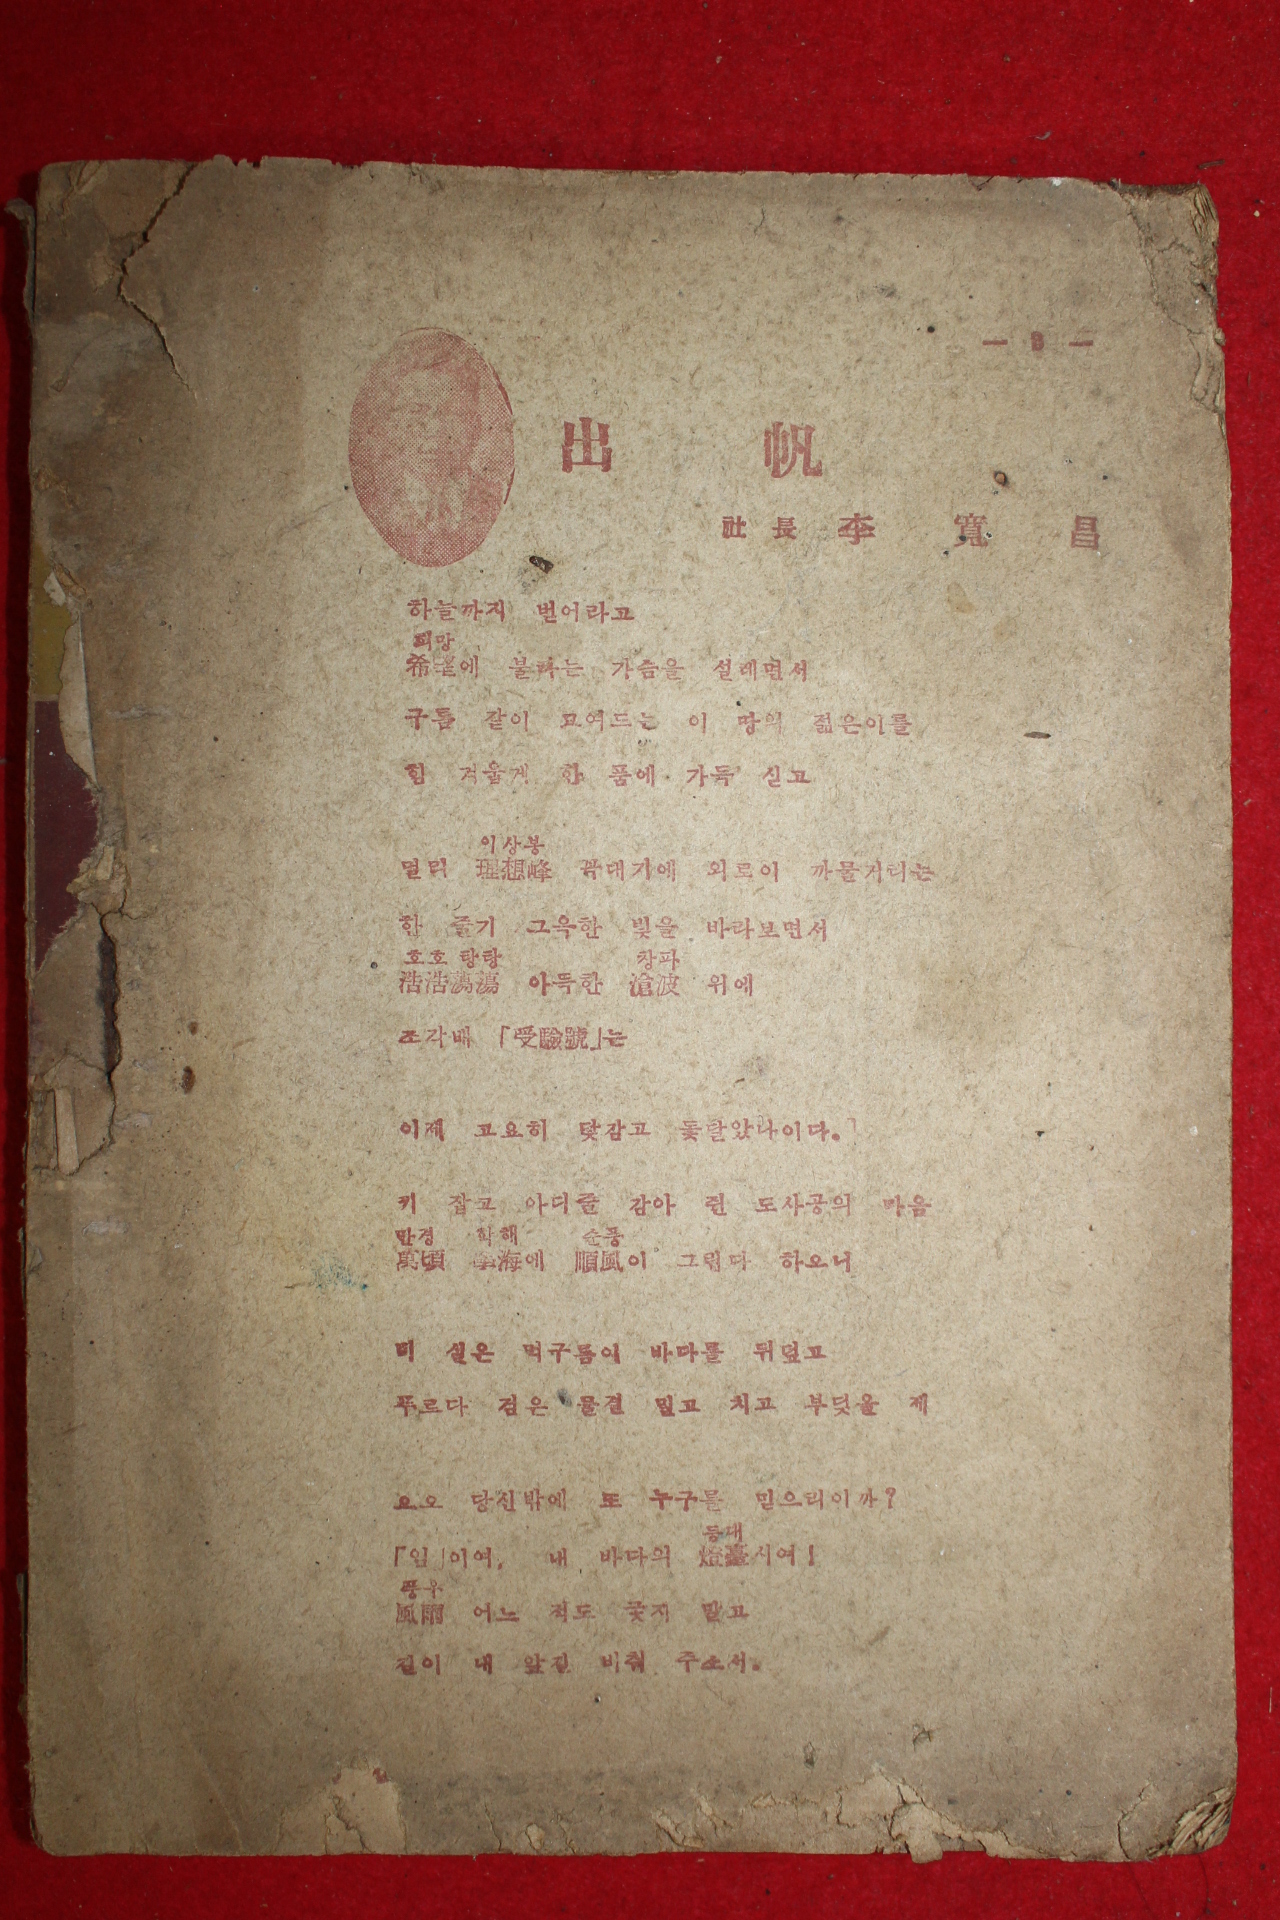 — 3 —
出 帆
社長 李 寬 昌
하늘까지 벋어라고
희망
希望에 불타는 가슴을 설레면서
구름 같이 모여드는 이 땅의 젊은이를
힘 겨웁게 한 품에 가득 싣고
이상봉
멀리 理想峰 꼭대기에 외로이 까물거리는
한 줄기 그윽한 빛을 바라보면서
호호탕탕 창파
浩浩蕩蕩 아득한 滄波 위에
조각배 「受驗號」는
이제 고요히 닻감고 돛달았나이다.
키 잡고 아디줄 감아 쥔 도사공의 마음
만경 학해 순풍
萬頃 學海에 順風이 그립다 하오니
비 실은 먹구름이 바다를 뒤덮고
푸르다 검은 물결 밀고 치고 부딪울 제
오오 당신밖에 또 누구를 믿으리이까?
등대
「임」이여, 내 바다의 燈臺시여!
풍우
風雨 어느 적도 궂지 말고
길이 내 앞길 비춰 주소서.